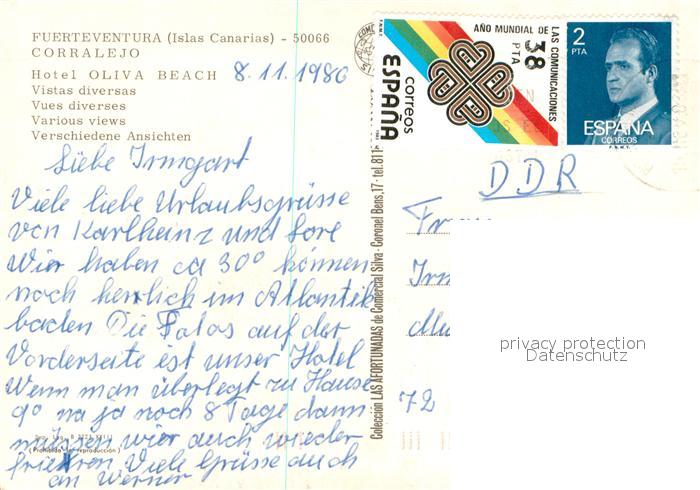 FUERTEVENTURA (Islas Canarias) - 50066
CORRALEJO
Hotel OLIVA BEACH 8.11.1986
Vistas diversas
Vues diverses
Various views
Verschiedene Ansichten
Liebe Irmgart
Viele liebe Urlaubsgrüsse
von Karlheinz und Lore
Wir haben ca 30° können
noch herrlich im Atlantik
baden Die Fotos auf der
Vorderseite ist unser Hotel
Wenn man überlegt zu Hause
9° na ja noch 8 Tage dann
müssen wier auch wieder
frieren Viele Grüsse auch
an Werner
(Prohibida la reproducción)
Colección LAS AFORTUNADAS de Comercial Silva - Coronel Bens, 17 - tel. 811
AÑO MUNDIAL DE LAS COMUNICACIONES
38 PTA
correos
ESPAÑA
2
PTA
ESPAÑA
CORREOS
F.N.M.T.
DDR
72
privacy protection
Datenschutz